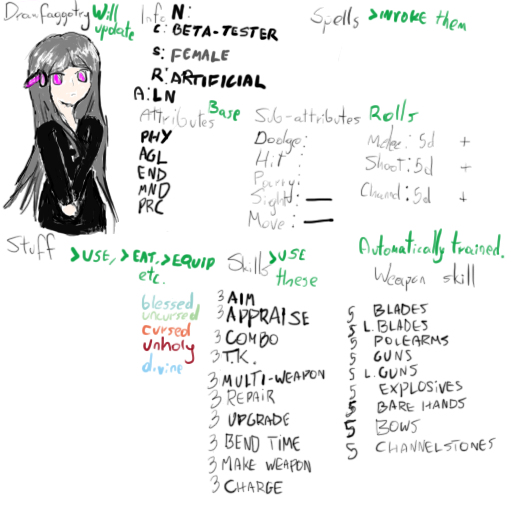 Drawfaggotry Will update
Info N:
C: BETA-TESTER
S: FEMALE
R: ARTIFICIAL
A: LN
Spells >INVOKE them
Attributes Base
PHY
AGL
END
MND
PRC
Sub-attributes
Dodge:
Hit :
Parry:
Sight:
Move :
Rolls
Melee: 5d +
Shoot: 5d +
Channel: 5d +
Stuff >USE, >EAT, >EQUIP etc.
blessed
uncursed
cursed
unholy
divine
Skills >USE these
3 AIM
3 APPRAISE
3 COMBO
3 T.K.
3 MULTI-WEAPON
3 REPAIR
3 UPGRADE
3 BEND TIME
3 MAKE WEAPON
3 CHARGE
Automatically trained.
Weapon skill
5 BLADES
5 L.BLADES
5 POLEARMS
5 GUNS
5 L.GUNS
5 EXPLOSIVES
5 BARE HANDS
5 BOWS
5 CHANNELSTONES